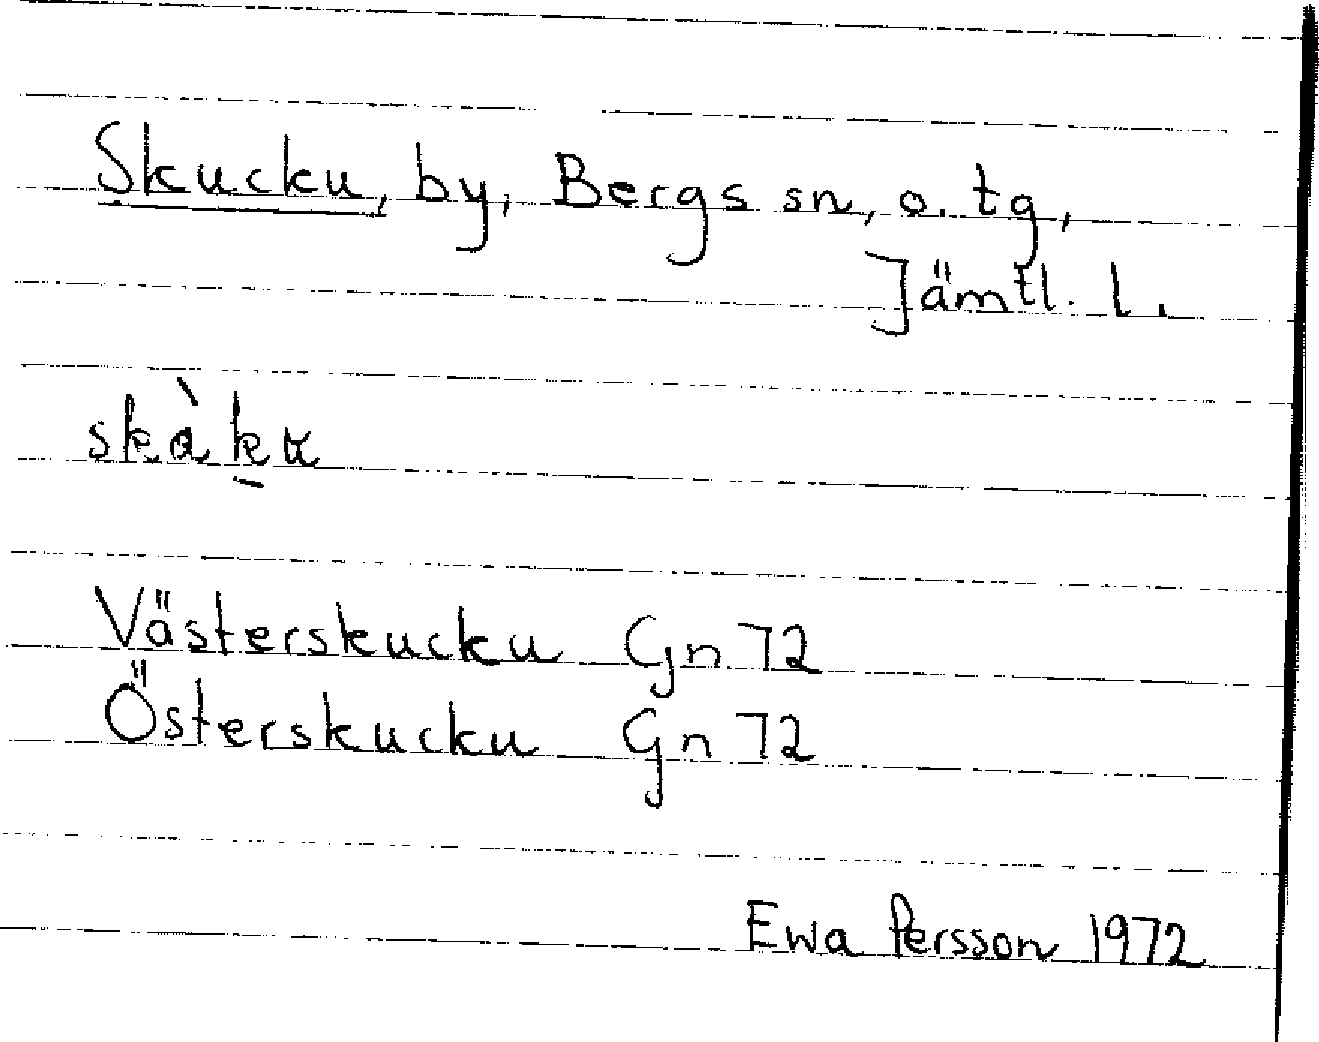 Skucku, by, Bergs sn, o. tg,
Jämtl. l.
Västerskucku Gn 72
Österskucku Gn 72
Ewa Persson 1972